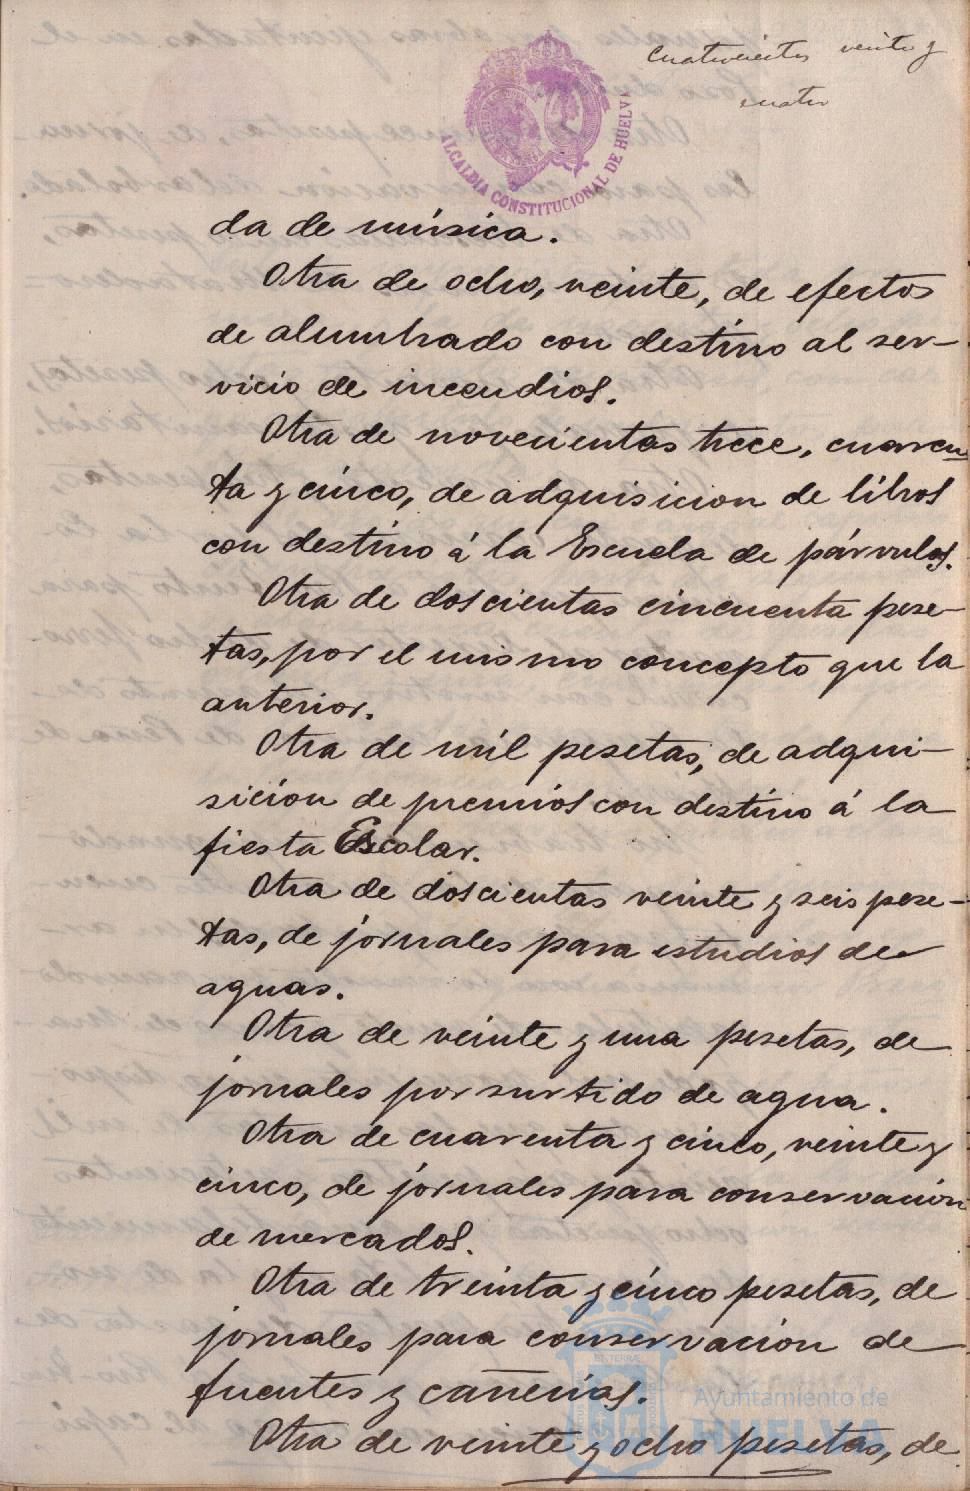 Cuatrocientos veinte y
cuatro
ALCALDIA CONSTITUCIONAL DE HUELVA
da de música.
Otra de ocho, veinte, de efectos
de alumbrado con destino al ser-
vicio de incendios.
Otra de novecientas trece, cuaren
ta y cinco, de adquisicion de libros
con destino á la Escuela de párvulos.
Otra de doscientas cincuenta pese-
tas, por el mismo concepto que la
anterior.
Otra de mil pesetas, de adqui-
sicion de premios con destino á la
fiesta Escolar.
Otra de doscientas veinte y seis pese-
tas, de jornales para estudios de
aguas.
Otra de veinte y una pesetas, de
jornales por surtido de agua.
Otra de cuarenta y cinco, veinte y
cinco, de jornales para conservacion
de mercados.
Otra de treinta y cinco pesetas, de
jornales para conservacion de
fuentes y cañerias.
Ayuntamiento de
HUELVA
Otra de veinte y ocho pesetas, de